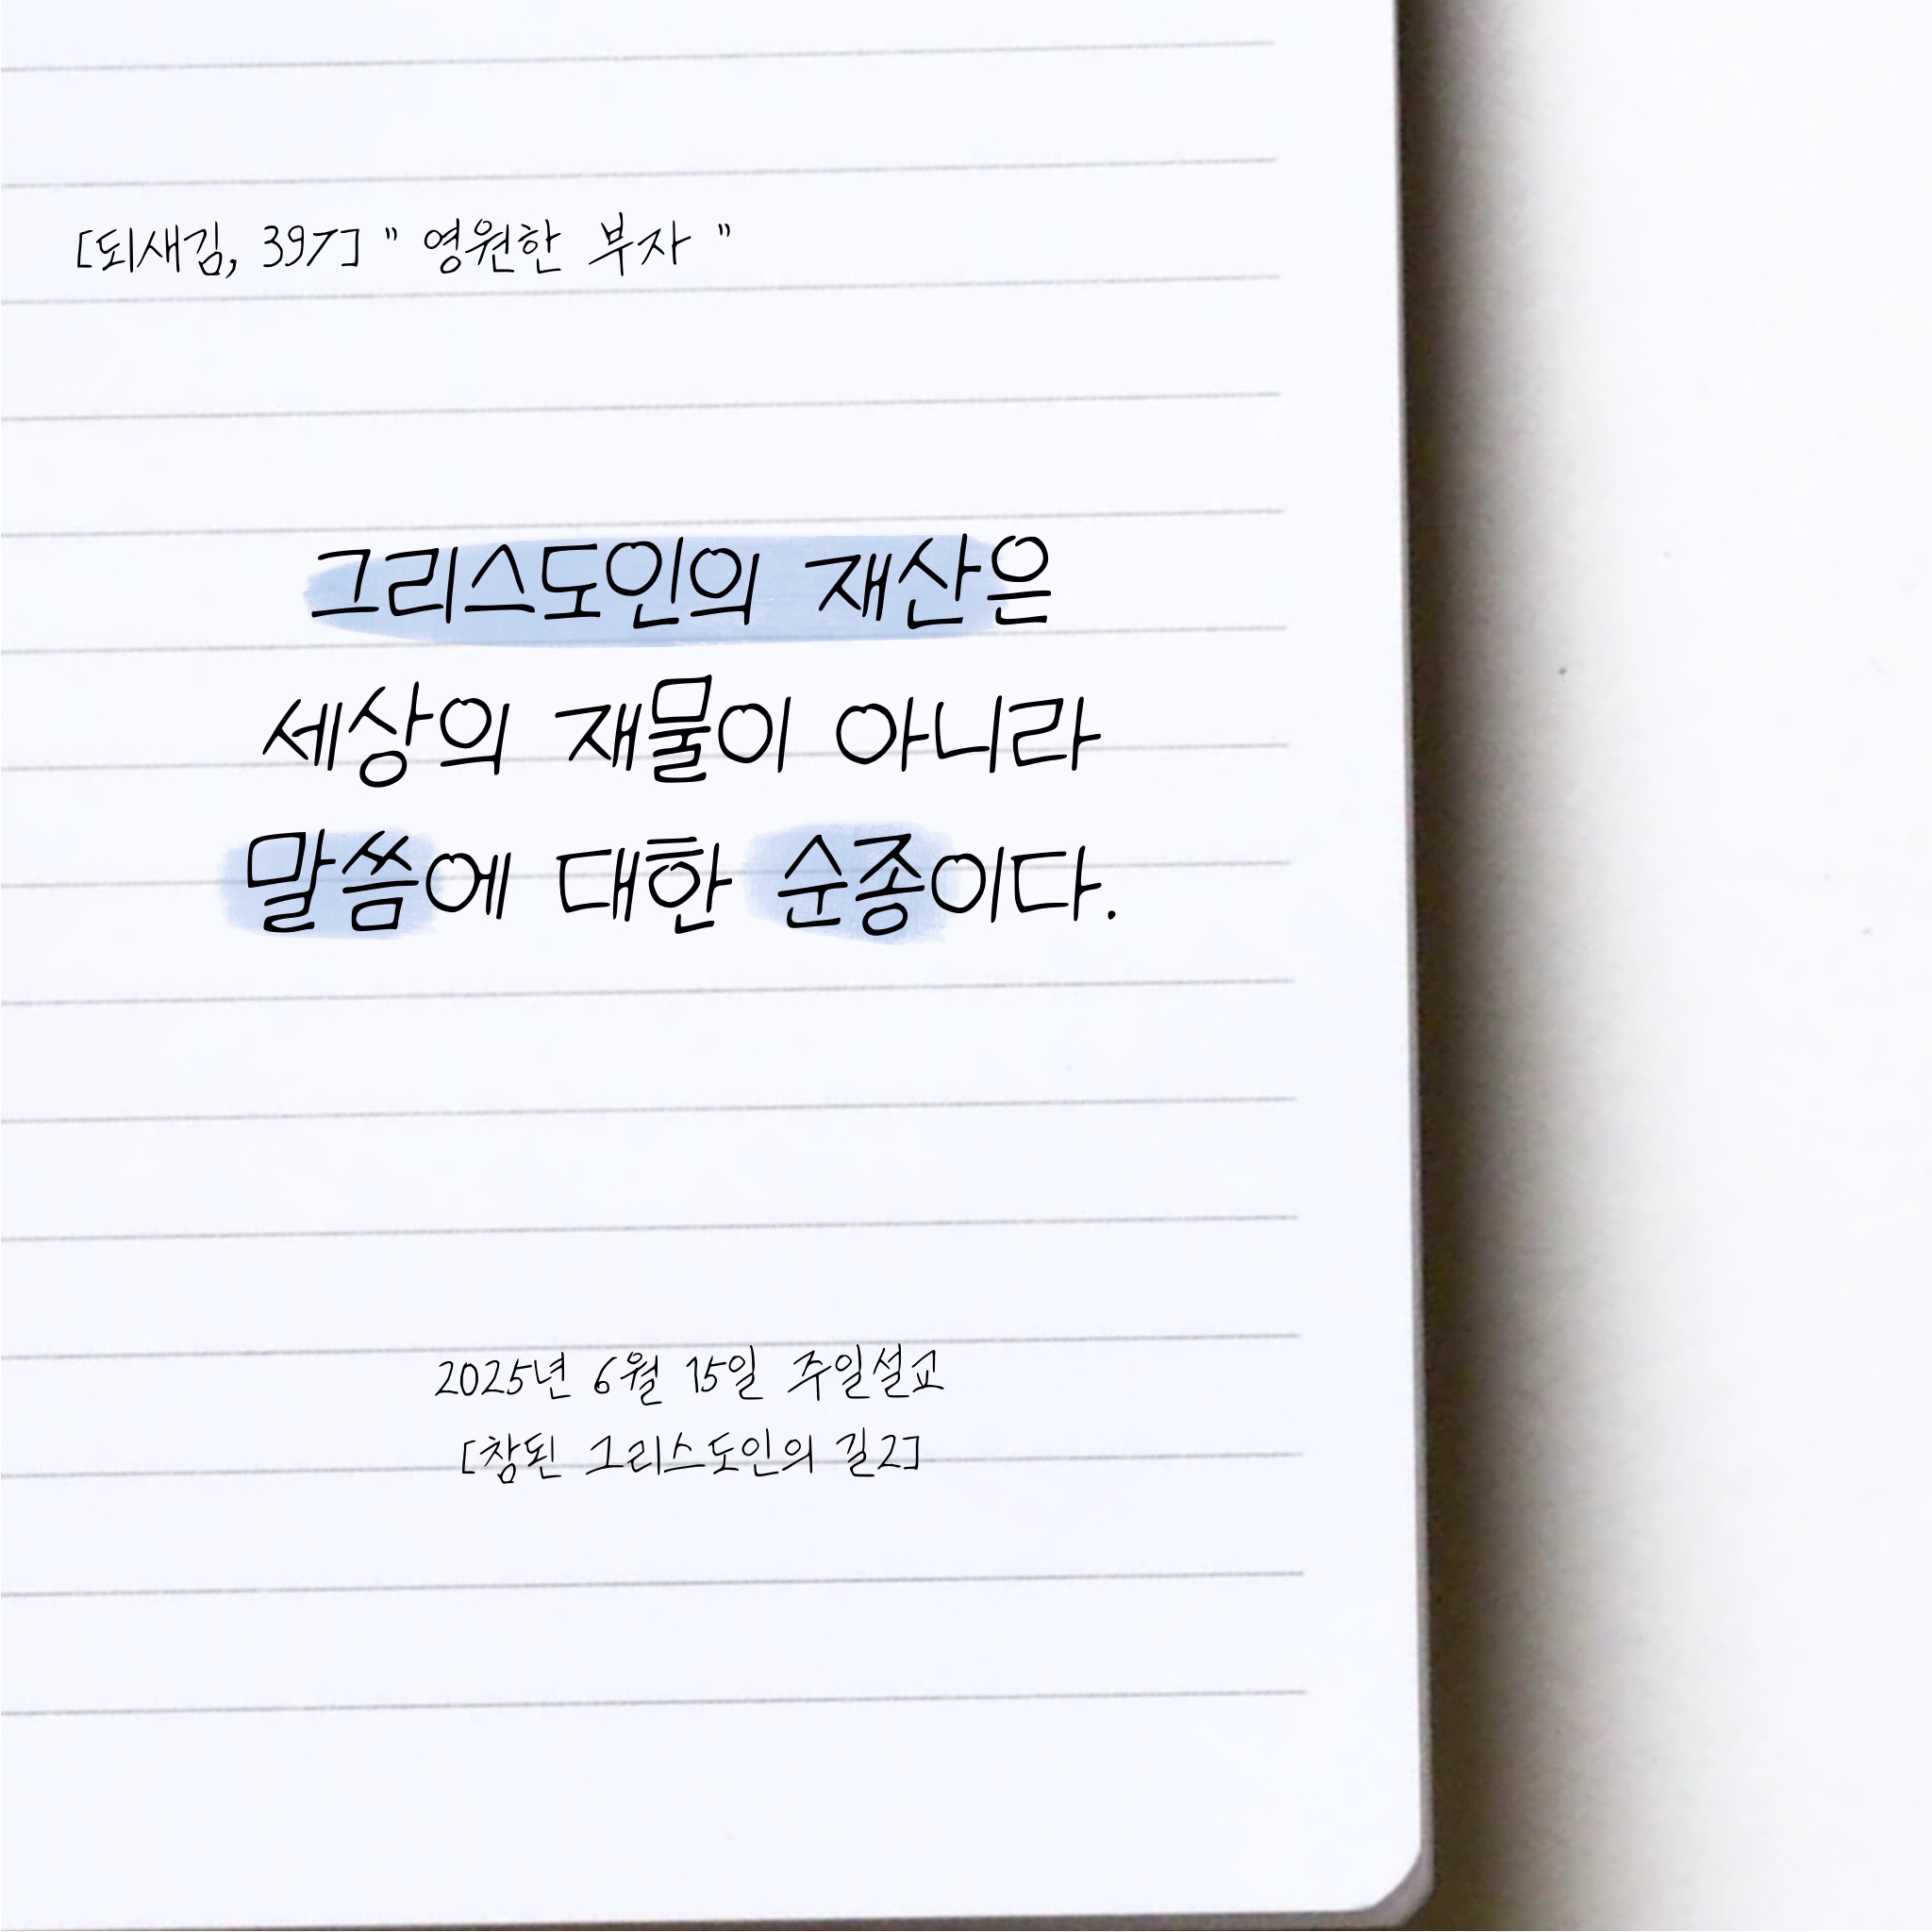 [되새김, 397] " 영원한 부자 "
그리스도인의 재산은
세상의 재물이 아니라
말씀에 대한 순종이다.
2025년 6월 15일 주일설교
[참된 그리스도인의 길2]